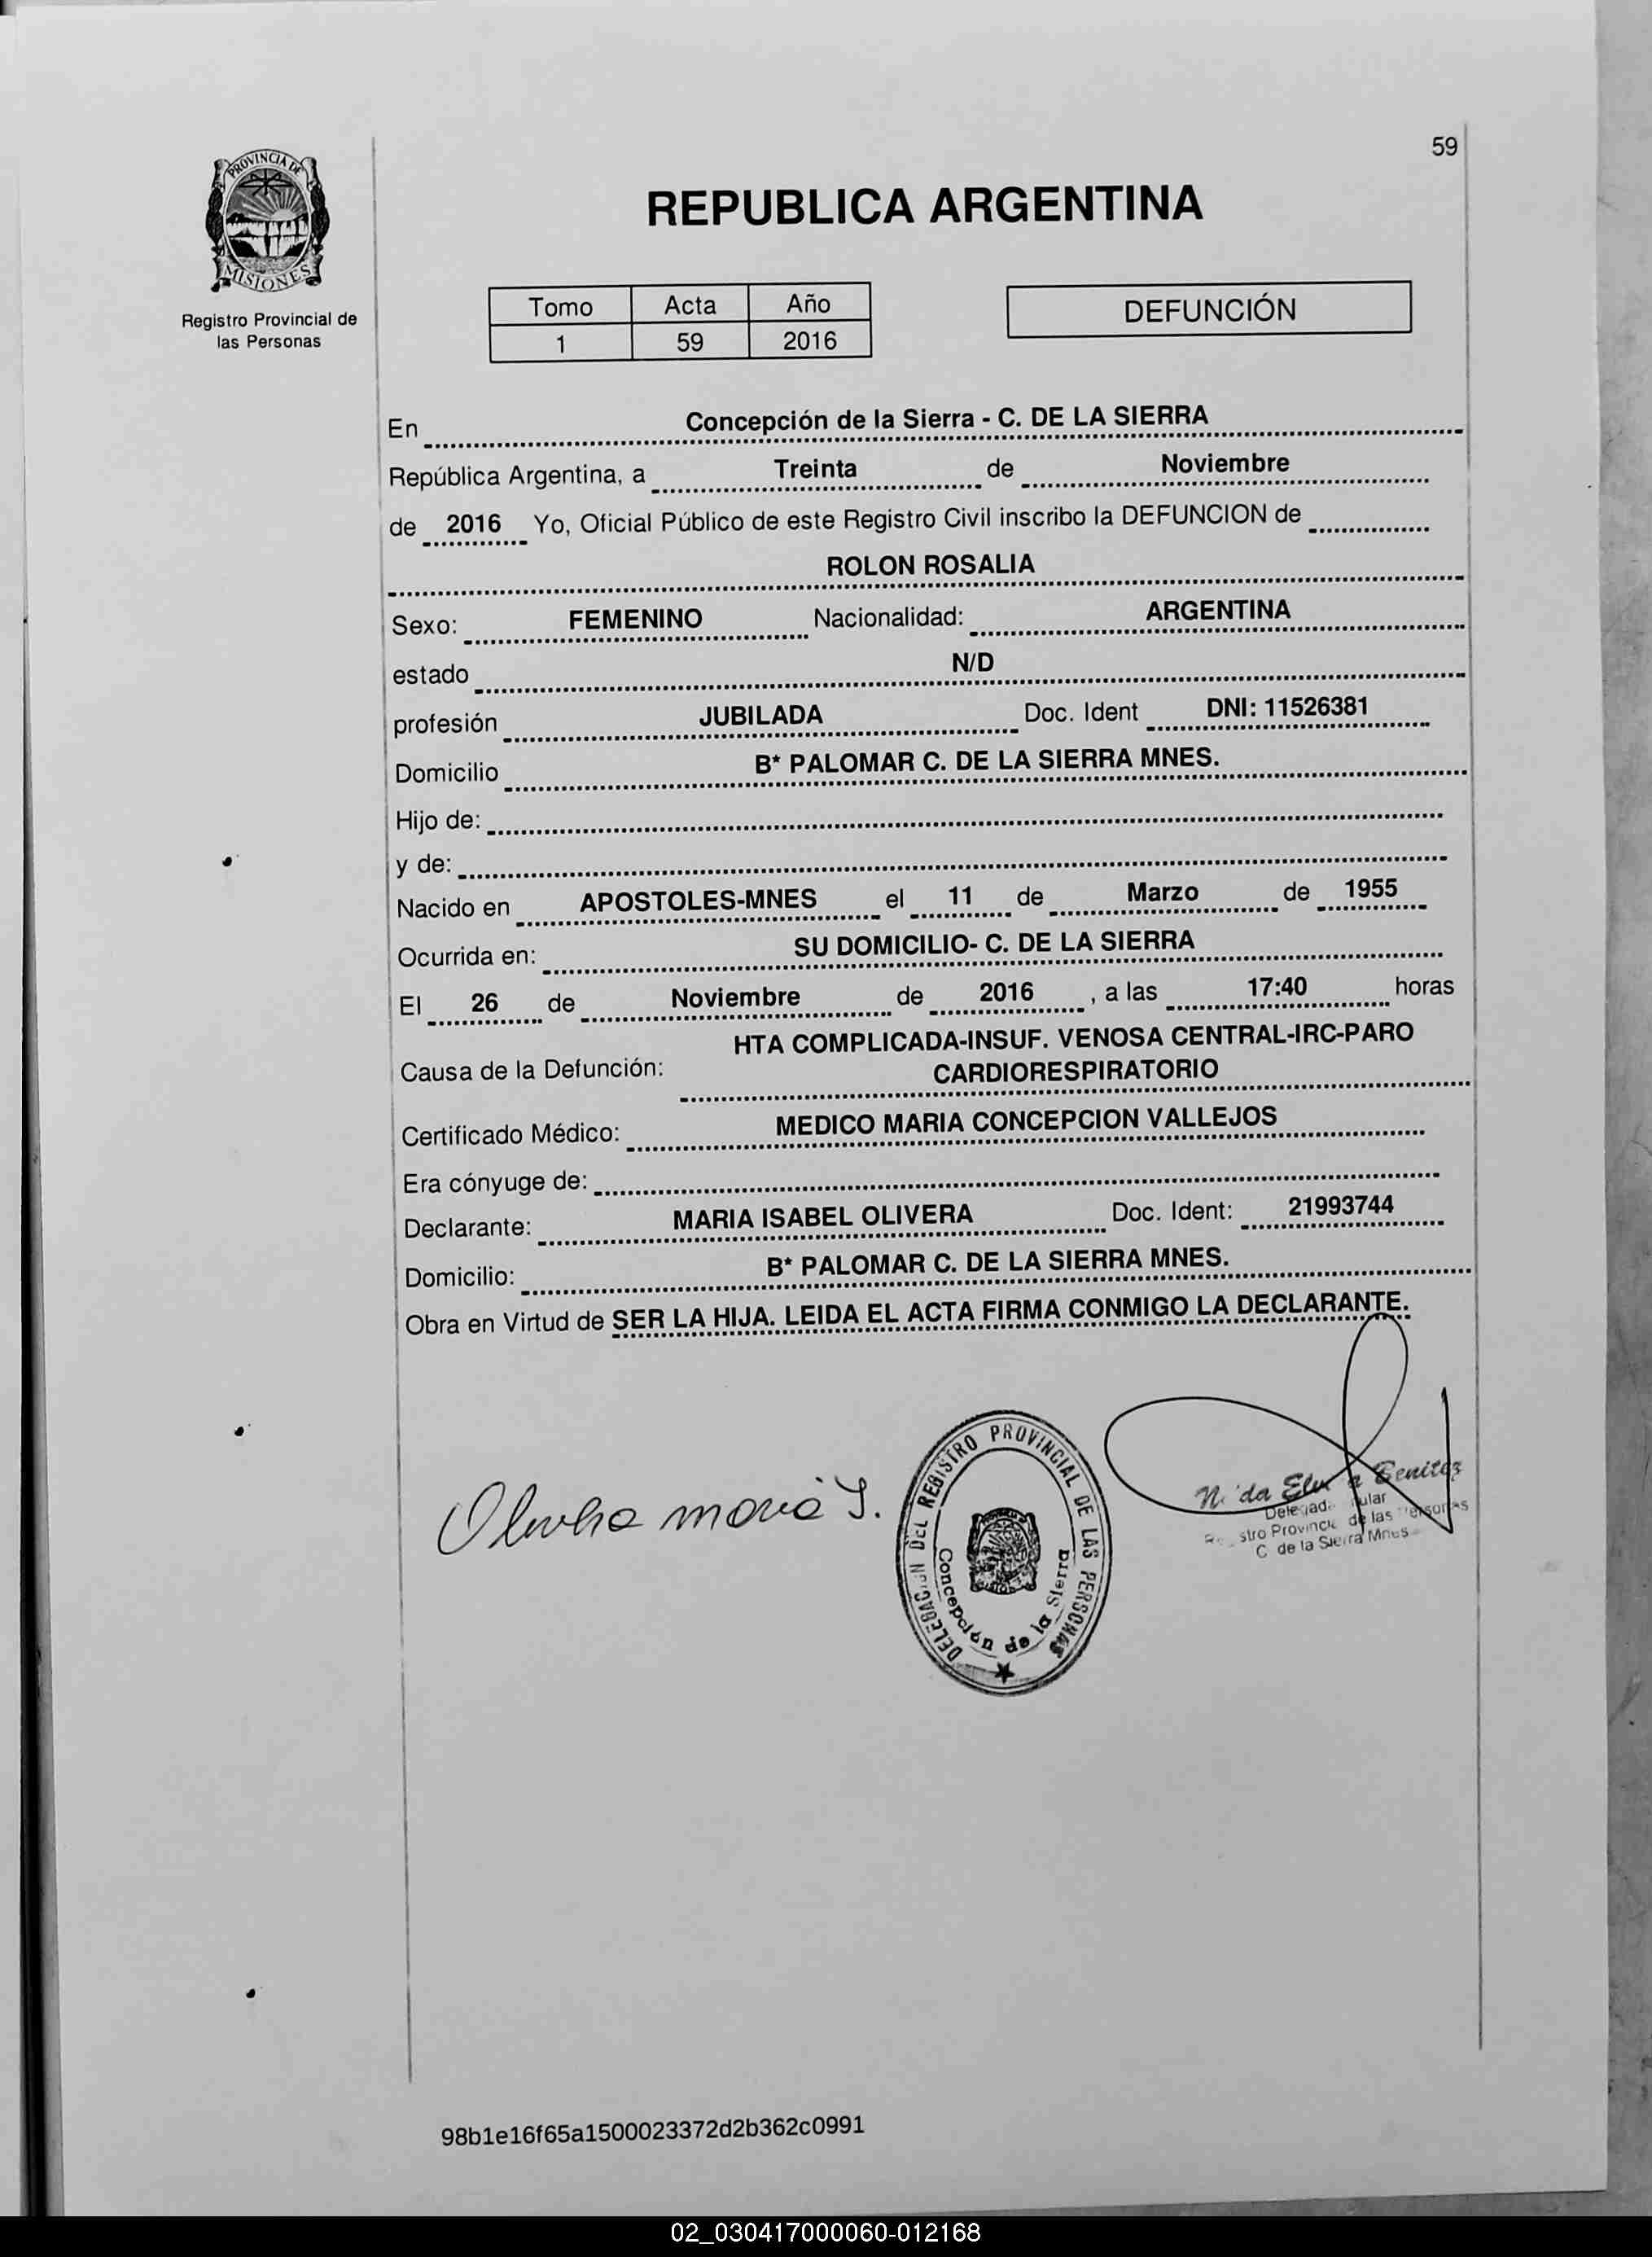 59
PROVINCIA DE
MISIONES
Registro Provincial de
las Personas
REPUBLICA ARGENTINA
Tomo Acta Año
1 59 2016
DEFUNCIÓN
En Concepción de la Sierra - C. DE LA SIERRA
República Argentina, a Treinta de Noviembre
de 2016 Yo, Oficial Público de este Registro Civil inscribo la DEFUNCION de
ROLON ROSALIA
Sexo: FEMENINO Nacionalidad: ARGENTINA
estado N/D
profesión JUBILADA Doc. Ident DNI: 11526381
Domicilio B* PALOMAR C. DE LA SIERRA MNES.
Hijo de:
y de:
Nacido en APOSTOLES-MNES el 11 de Marzo de 1955
Ocurrida en: SU DOMICILIO- C. DE LA SIERRA
El 26 de Noviembre de 2016 , a las 17:40 horas
HTA COMPLICADA-INSUF. VENOSA CENTRAL-IRC-PARO
Causa de la Defunción: CARDIORESPIRATORIO
Certificado Médico: MEDICO MARIA CONCEPCION VALLEJOS
Era cónyuge de:
Declarante: MARIA ISABEL OLIVERA Doc. Ident: 21993744
Domicilio: B* PALOMAR C. DE LA SIERRA MNES.
Obra en Virtud de SER LA HIJA. LEIDA EL ACTA FIRMA CONMIGO LA DECLARANTE.
DELEGACION DEL REGISTRO PROVINCIAL DE LAS PERSONAS
Concepción de la Sierra
Benitez
de las Personas
C de la Sierra Mnes
98b1e16f65a1500023372d2b362c0991
02_030417000060-012168